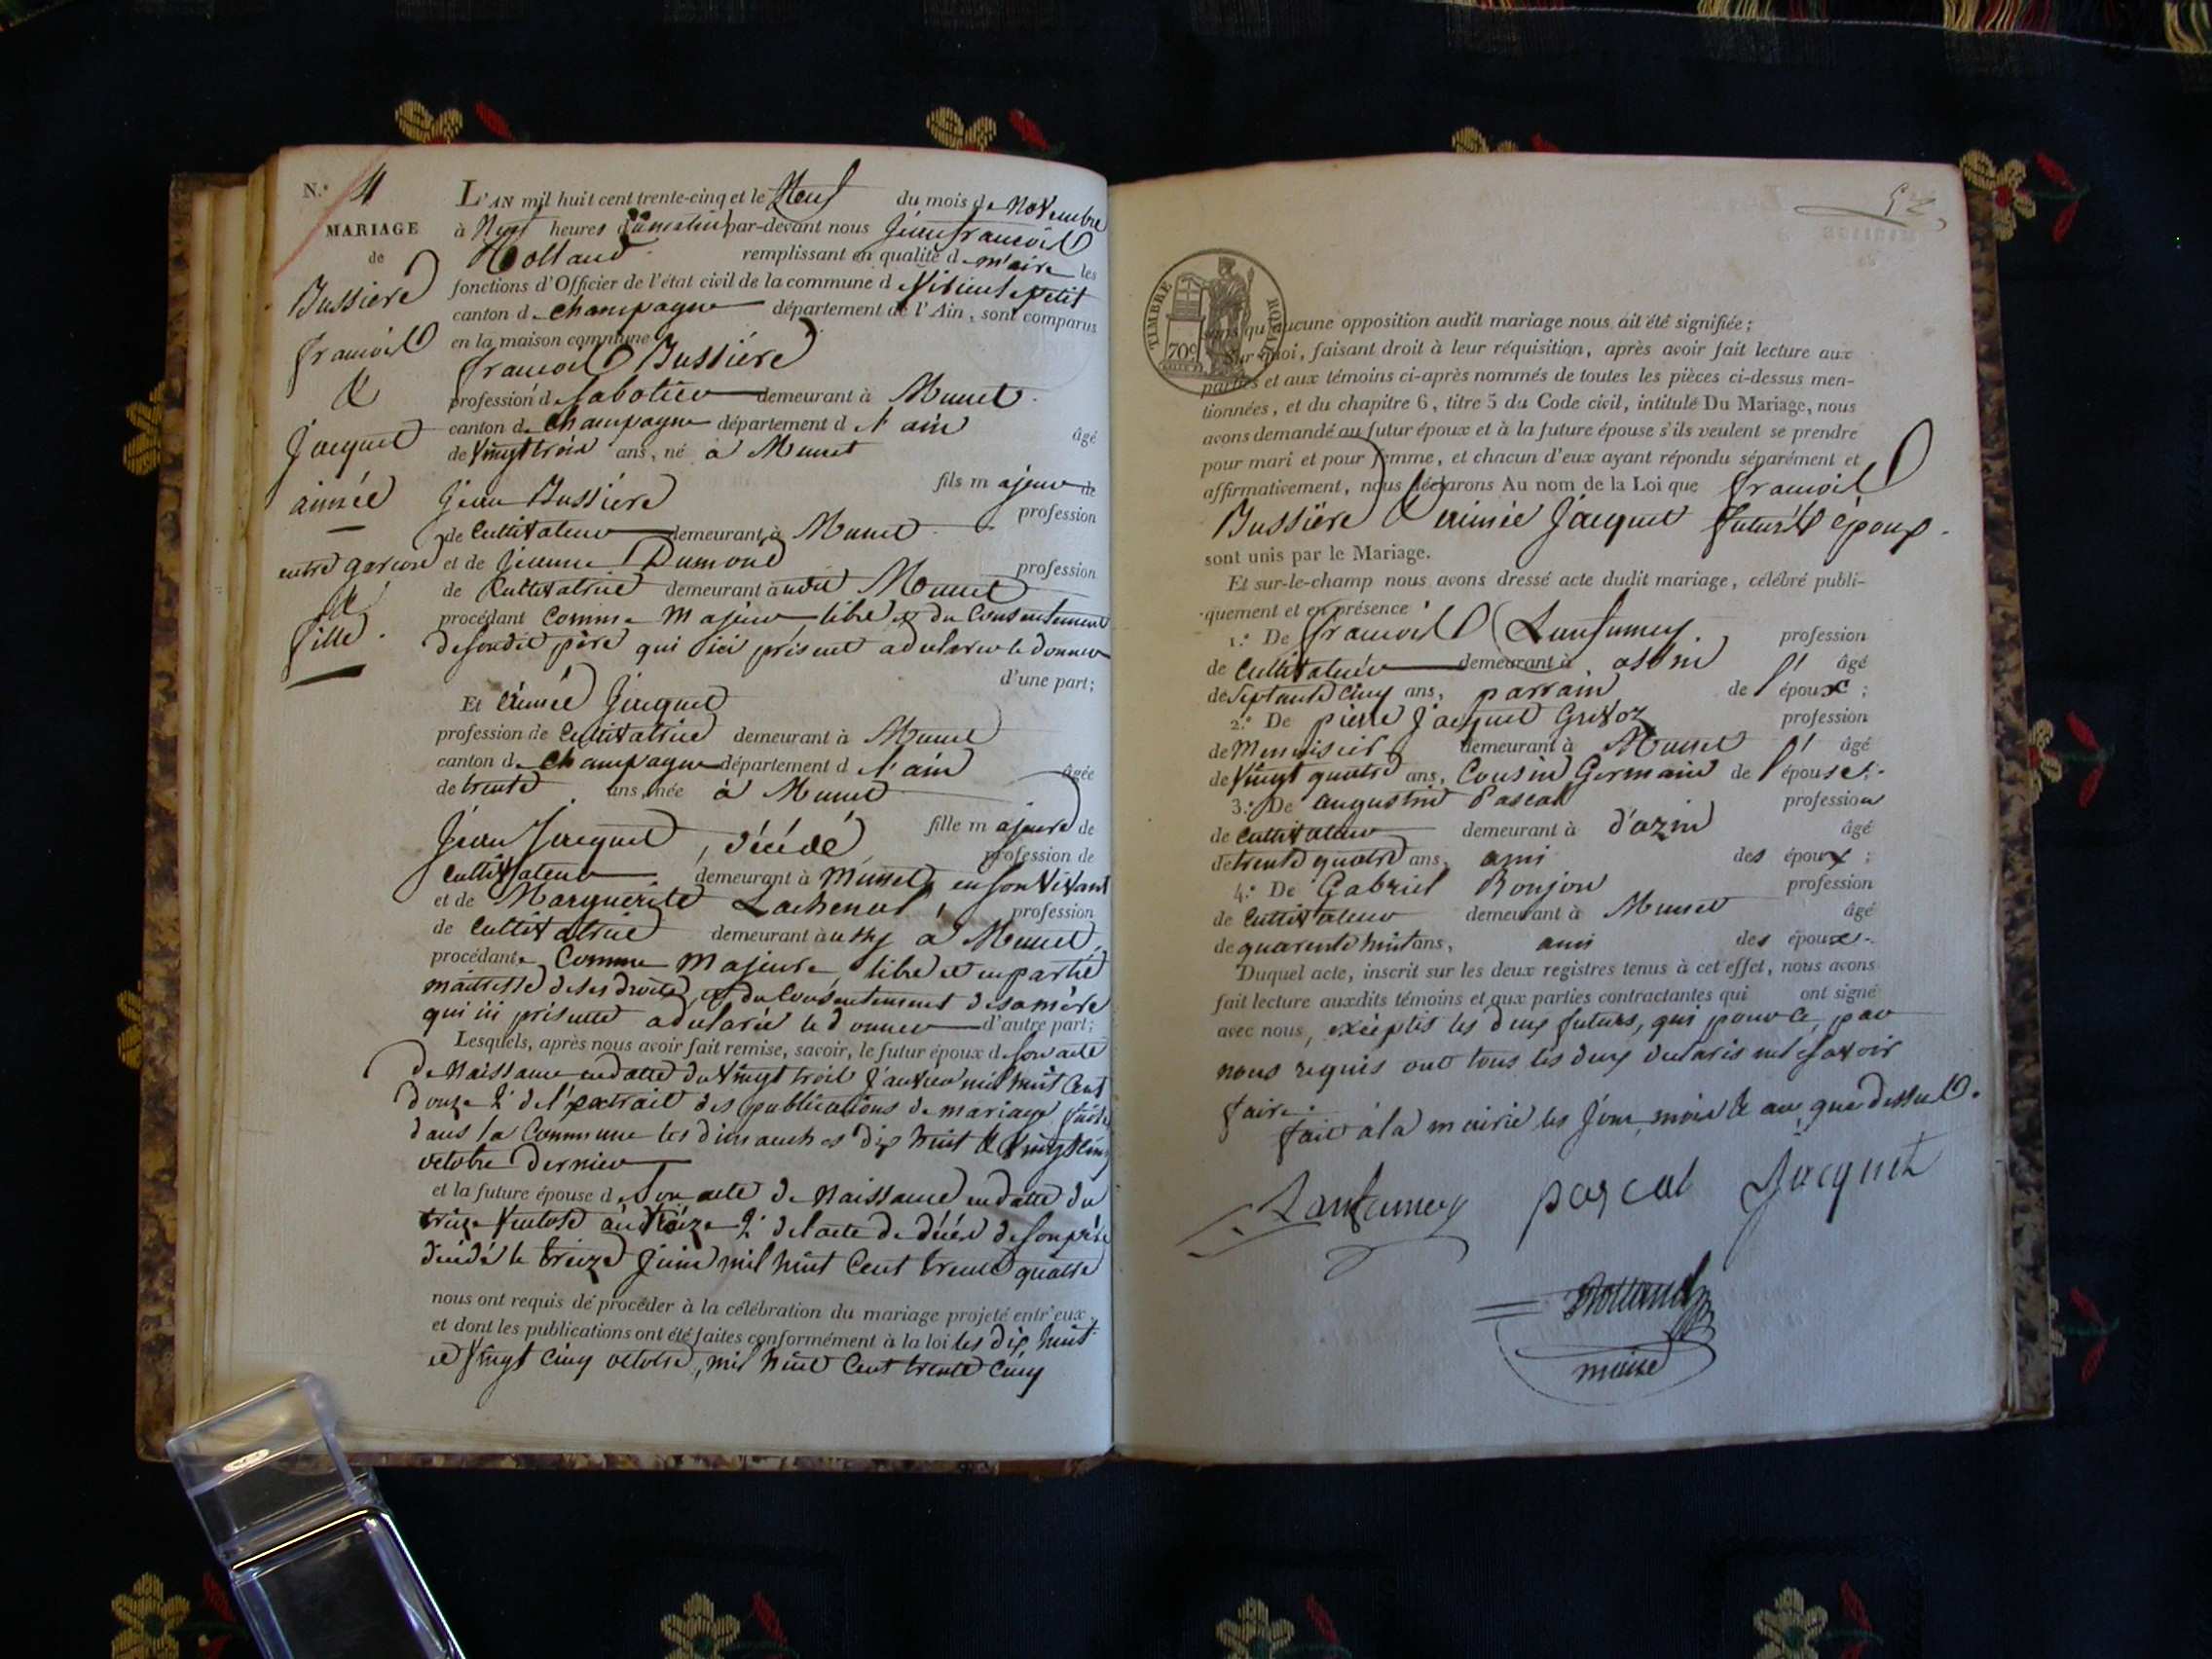 N.° 4
MARIAGE
de
Bussiere
françois
&
Jacquet
aimée
entre garçon
&
fille.
L'AN mil huit cent trente-cinq et le Neuf du mois de Novembre
à Neuf heures du matin par-devant nous Jean françois
Rolland remplissant en qualité de maire les
fonctions d'Officier de l'état civil de la commune d Virieu le petit
canton de champagne département de l'Ain, sont comparus
en la maison commune
françois Bussière
profession de sabotier demeurant à Munet
canton de champagne département d l'ain âgé
de vingt trois ans, né à Munet
fils majeur de
Jean Bussière profession
de Cultivateur demeurant à Munet
et de Jeanne Dumond profession
de Cultivatrice demeurant audit Munet
procédant Comme Majeur, libre et du Consentement
de son dit père qui ici présent a déclaré le donner
d'une part;
Et aimée Jacquet
profession de Cultivatrice demeurant à Munet
canton de champagne département d l'ain âgée
de trente ans, née à Munet
fille majeure de
Jean Jacquet, décédé profession de
Cultivateur demeurant à Munet, en son vivant
et de Marguerite Lachenal, profession
de Cultivatrice demeurant à Munet,
procédante Comme Majeure libre et en partie
maîtresse de ses droits, et du Consentement de sa mère
qui ici présente a déclaré le donner d'autre part;
Lesquels, après nous avoir fait remise, savoir, le futur époux de son acte
de Naissance en datte du vingt trois Janvier mil huit Cent
douze 2° de l'extrait des publications de mariage faites
dans la Commune les dimanches dix huit & vingt cinq
octobre dernier
et la future épouse de son acte de Naissance en datte du
treize Ventose an treize 2° de l'acte de décès de son père
décédé le treize Juin mil huit Cent trente quatre
nous ont requis de procéder à la célébration du mariage projeté entr'eux,
et dont les publications ont été faites conformément à la loi les dix huit
et vingt cinq octobre, mil huit Cent trente cinq
TIMBRE ROYAL
70c
sans qu'aucune opposition audit mariage nous ait été signifiée;
Sur quoi, faisant droit à leur réquisition, après avoir fait lecture aux
parties et aux témoins ci-après nommés de toutes les pièces ci-dessus men-
tionnées, et du chapitre 6, titre 5 du Code civil, intitulé Du Mariage, nous
avons demandé au futur époux et à la future épouse s'ils veulent se prendre
pour mari et pour femme, et chacun d'eux ayant répondu séparément et
affirmativement, nous déclarons Au nom de la Loi que françois
Bussière & aimée Jacquet futurs époux
sont unis par le Mariage.
Et sur-le-champ nous avons dressé acte dudit mariage, célébré publi-
quement et en présence
1.° De françois Lanfumey profession
de Cultivateur demeurant à âgé
de septante cinq ans, parrain de l'époux;
2.° De pierre Jacquet Grivoz profession
de Menuisier demeurant à Munet âgé
de vingt quatre ans, Cousin Germain de l'épouse;
3.° De augustin Pascal profession
de Cultivateur demeurant à d'azin âgé
de trente quatre ans, ami des époux;
4.° De Gabriel Bonjon profession
de Cultivateur demeurant à Munet âgé
de quarente huit ans, ami des époux
Duquel acte, inscrit sur les deux registres tenus à cet effet, nous avons
fait lecture auxdits témoins et aux parties contractantes qui ont signé
avec nous, exceptés les deux futurs, qui pour ce par
nous requis ont tous les deux déclarés ne le savoir
faire.
fait à la mairie les Jour, mois & an que dessus.
Lanfumey pascal Jacquet
Rolland
maire